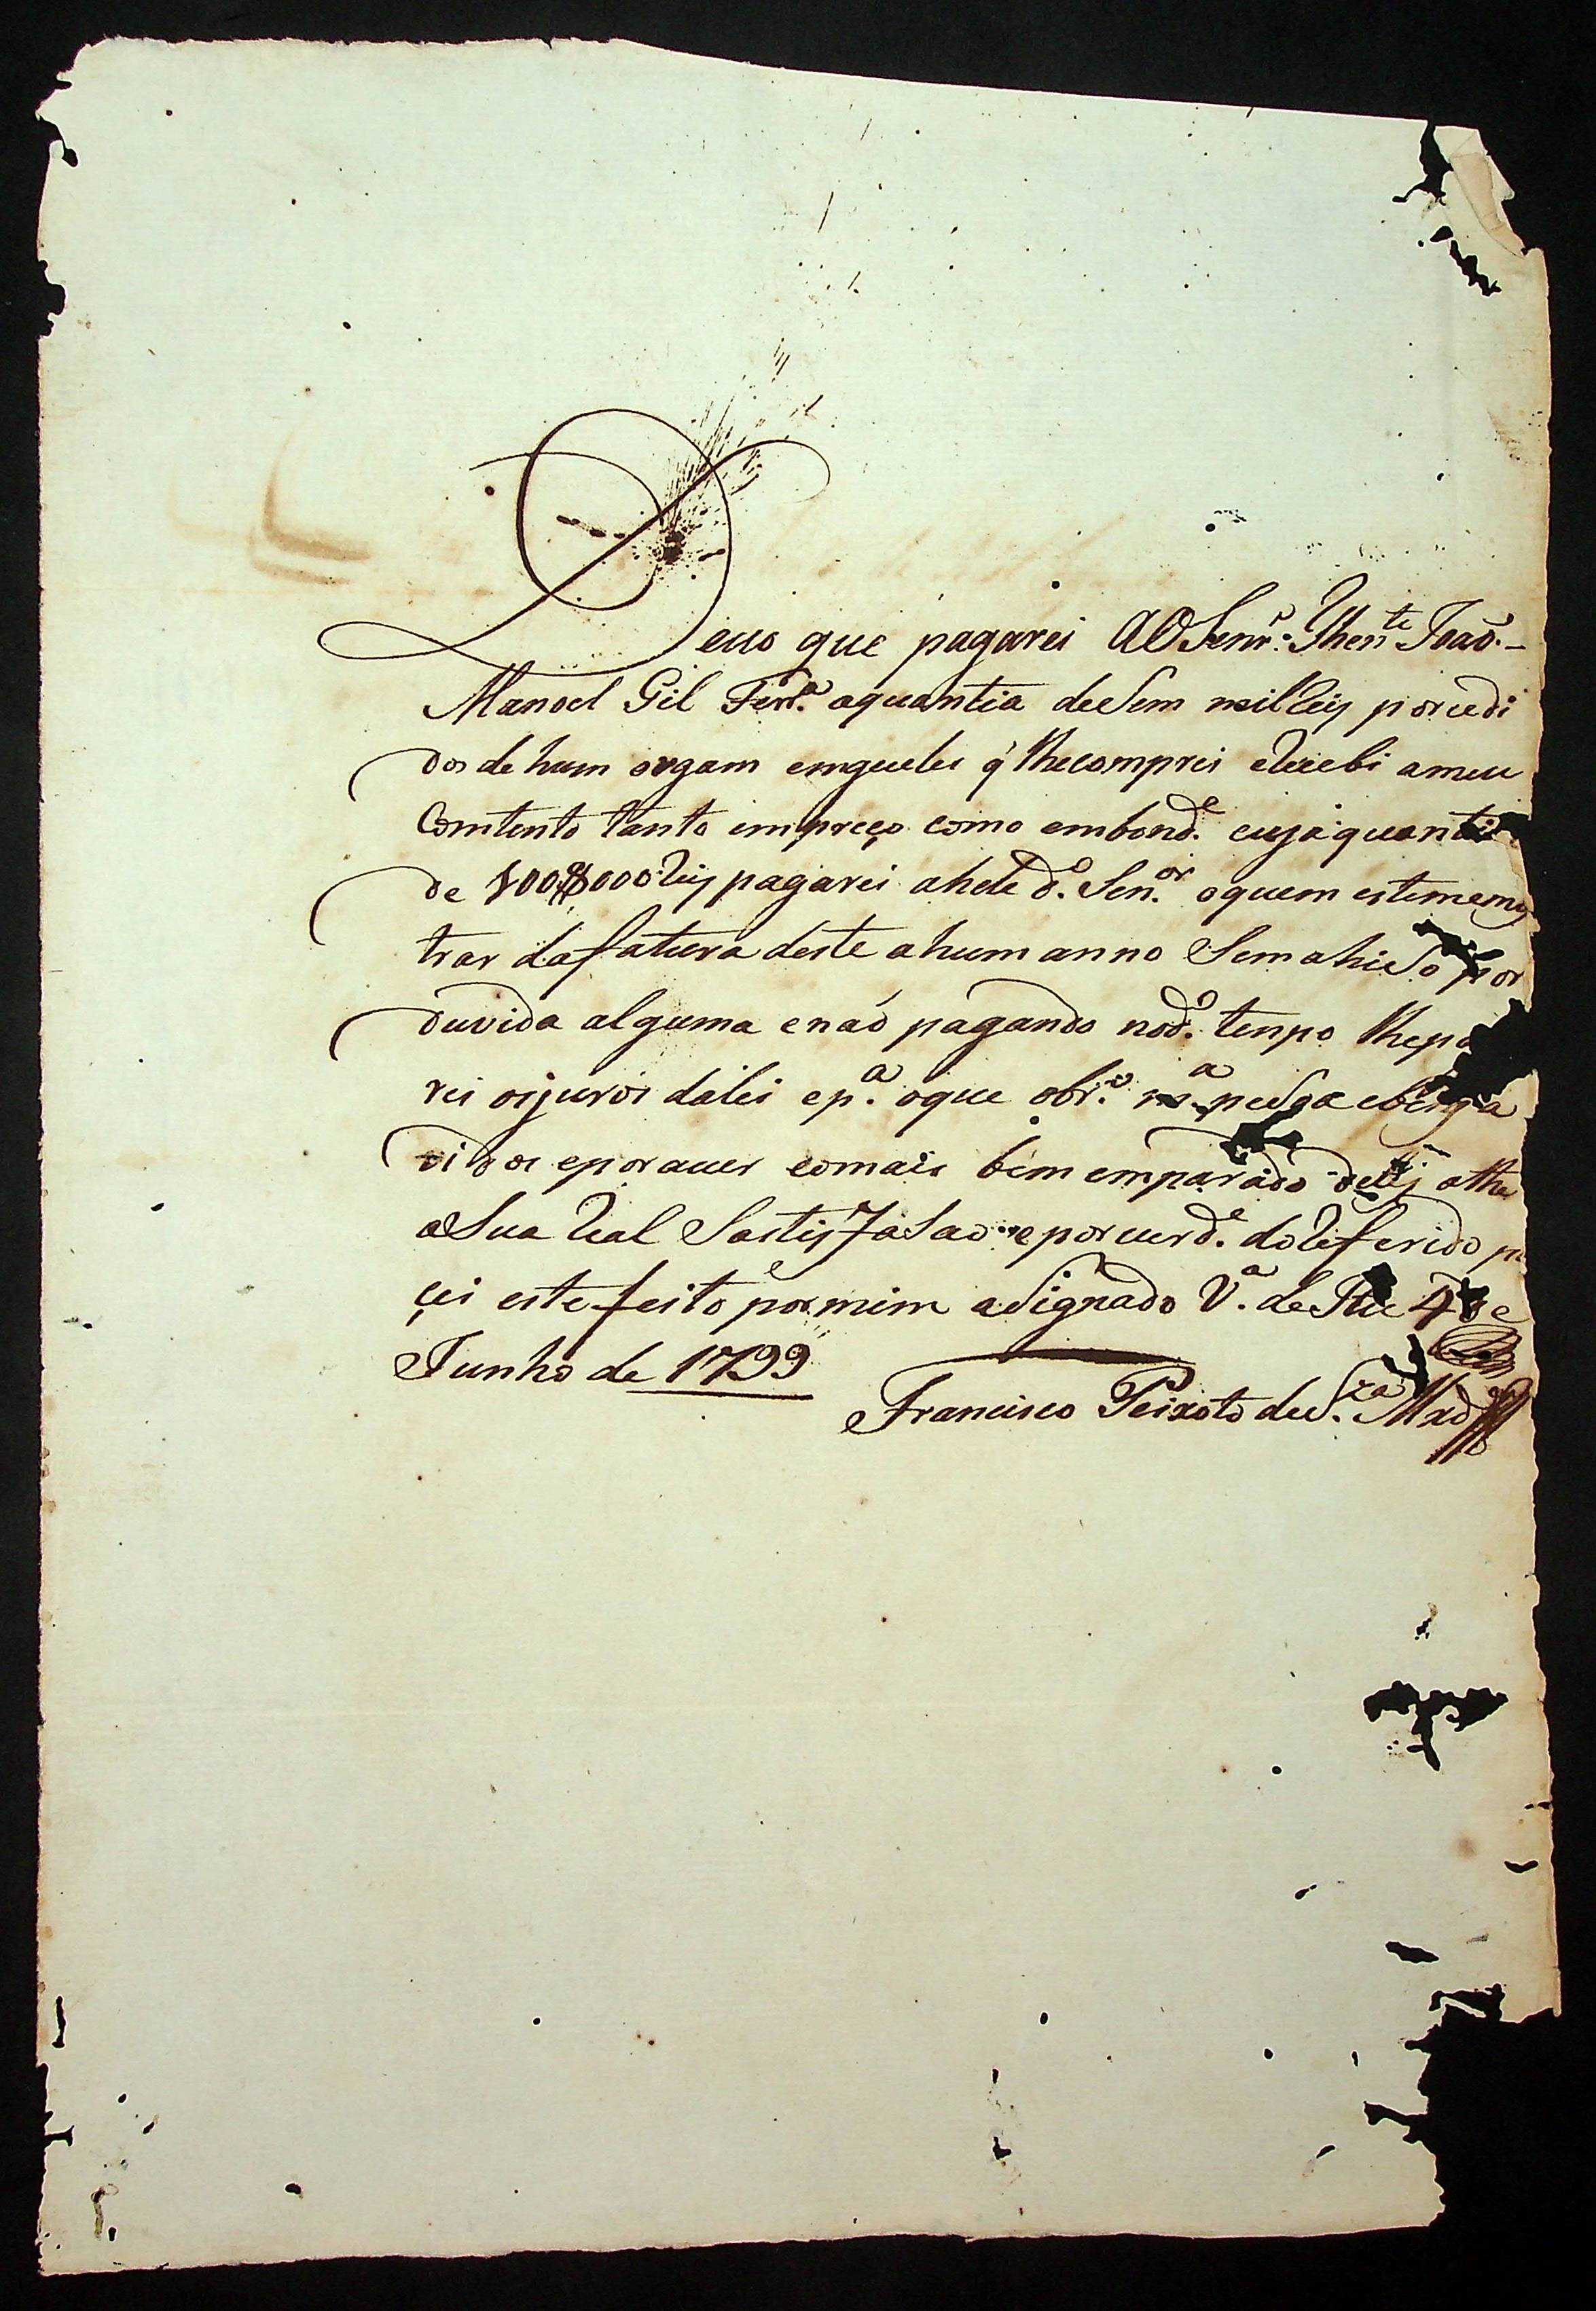 Devo que pagarei AO Senr. Thente João.
Manoel Gil Ferra. aquantia deSem mil Reis porcedi
dos de hum orgam emgueles q' lhecomprei eRecebi ameu
Comtento tanto empreço como embond.e cuja quantia
de 100$000 Reis pagarei ahele d.o Sen.or oquem estememos
trar dafatura deste ahum anno Sem ahiSo por
duvida alguma enaõ pagando nod.o tenpo lhepa
rei osjuros dalei ep.a oque obr.o m.a peSoa ebens
vidos eporaver eomais bem emparado deles athe
aSua Real SastisfaSao eporverd.e doReferido pa
cei este feito pormim aSignado V.a de Itu 4 de
Junho de 1799
Francisco Peixoto deS.za Mxdo